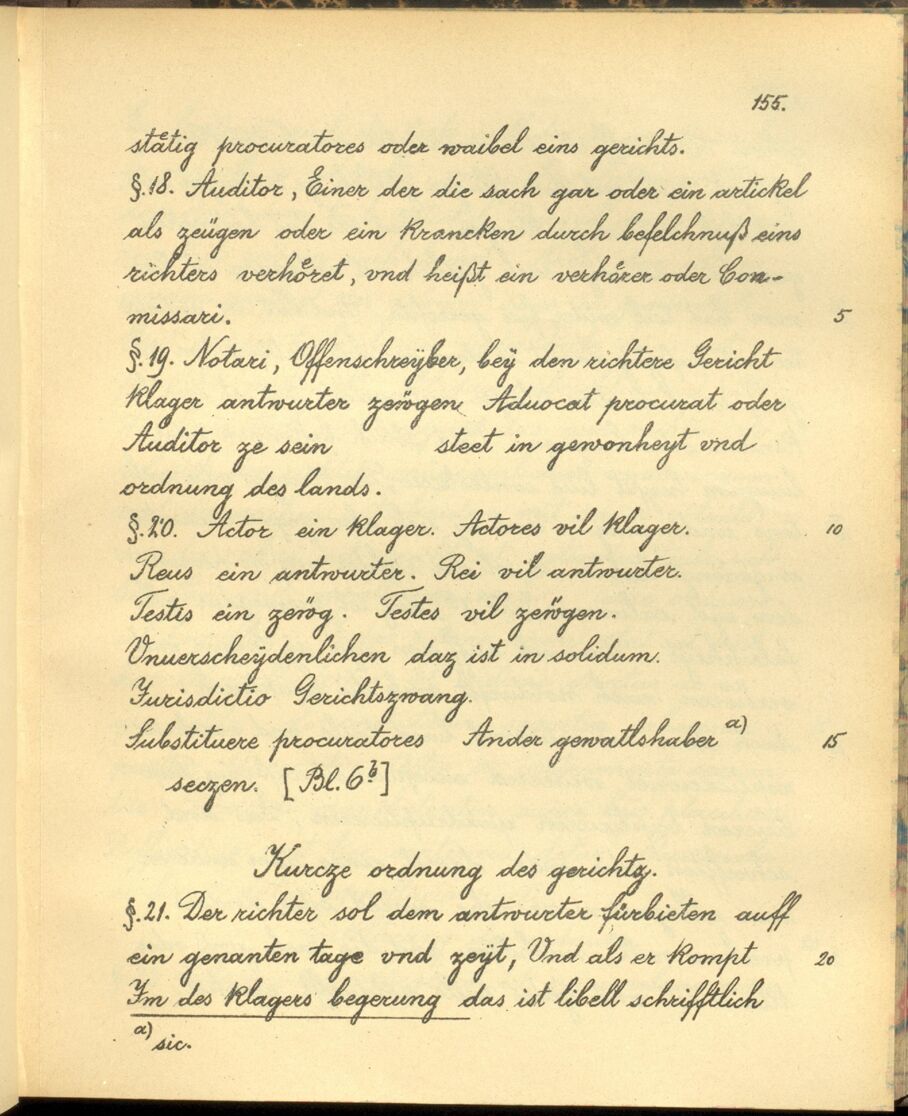 155.
stätig procuratores oder waibel eins gerichts.
§.18. Auditor, Einer der die sach gar oder ein artickel
als zeügen oder ein krancken durch befelchnuß eins
richters verhöret, vnd heißt ein verhörer oder Com-
missari. 5
§.19. Notari, Offenschreÿber, beÿ den richtere Gericht
klager antwurter zeẅgen Aduocat procurat oder
Auditor ze sein steet in gewonheyt vnd
ordnung des lands.
§.20. Actor ein klager. Actores vil klager. 10
Reus ein antwurter. Rei vil antwurter.
Testis ein zeẅg. Testes vil zeẅgen.
Vnuerscheÿdenlichen daz ist in solidum.
Jurisdictio Gerichtszwang.
Substituere procuratores Ander gewattshaber a) 15
seczen. [Bl. 6b]
Kurcze ordnung des gerichtz.
§.21. Der richter sol dem antwurter fürbieten auff
ein genanten tage vnd zeÿt, Vnd als er kompt 20
Im des klagers begerung das ist libell schrifftlich
a) sic.